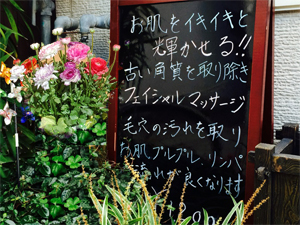 お肌をイキイキと
輝かせる!!
古い角質を取り除き
フェイシャルマッサージ
毛穴の汚れを取り
お肌プルプル、リンパ
流れが良くなります